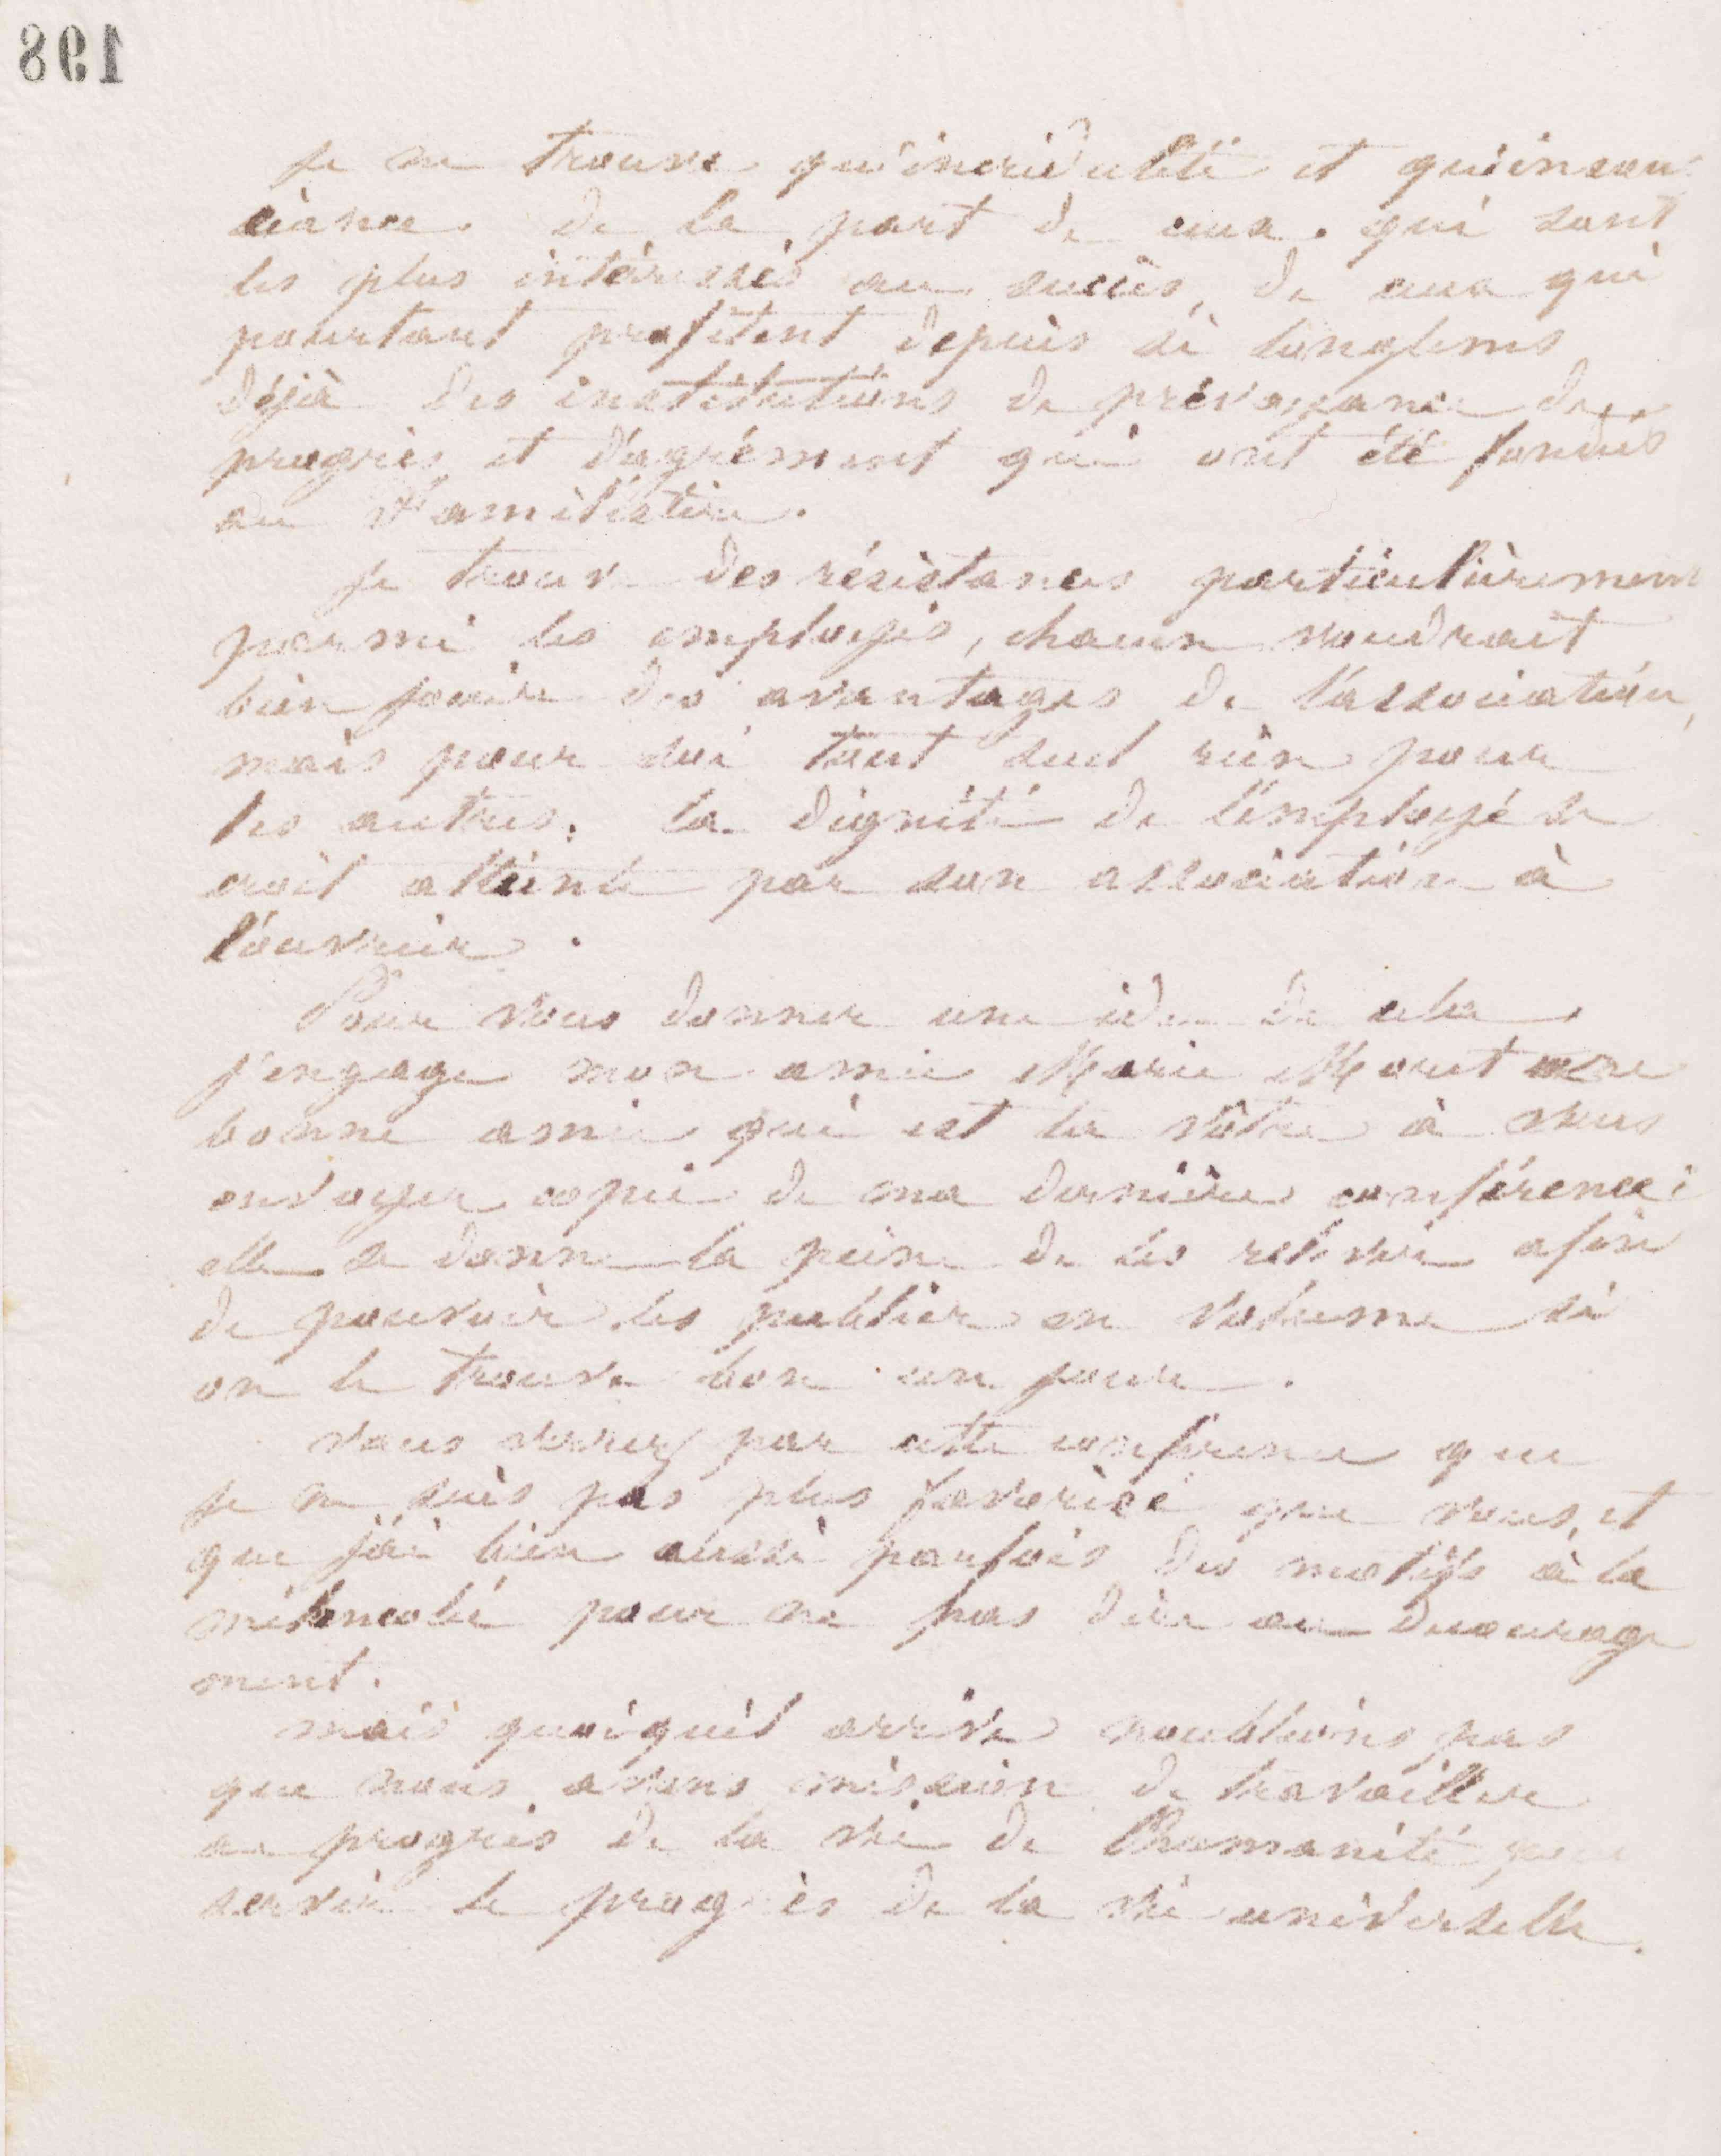 198
je ne trouve qu'incrédulité et qu'insou
ciance de la part de ceux qui sont
les plus intéressés au succès, de ceux qui
pourtant profitent depuis si longtems
déjà des institutions de prévoyance de
progrès et d'agrément qui ont été fondés
au Familistère.
je trouve des résistances particulièrement
parmi les employés, chacun voudrait
bien jouir des avantages de l'association,
mais pour soi tout seul rien pour
les autres. la dignité de l'employé se
croit atteinte par son association à
l'ouvrier.
Pour vous donner une idee de cela
j'engage mon amie Marie Moret une
bonne amie qui est la vôtre à vous
envoyer copie de ma dernière conférence;
elle se donne la peine de les relever afin
de pouvoir les publier en volume si
on le trouve bon un jour.
vous verrez par cette conference que
je ne suis pas plus favorisé que vous, et
que j'ai bien aussi parfois des motifs à la
mélancolie pour ne pas dire au decourage
ment.
mais quoiquil arrive noublions pas
que nous avons mission de travailler
au progrès de la vie de l'humanité pour
servir le progrès de la vie universelle.